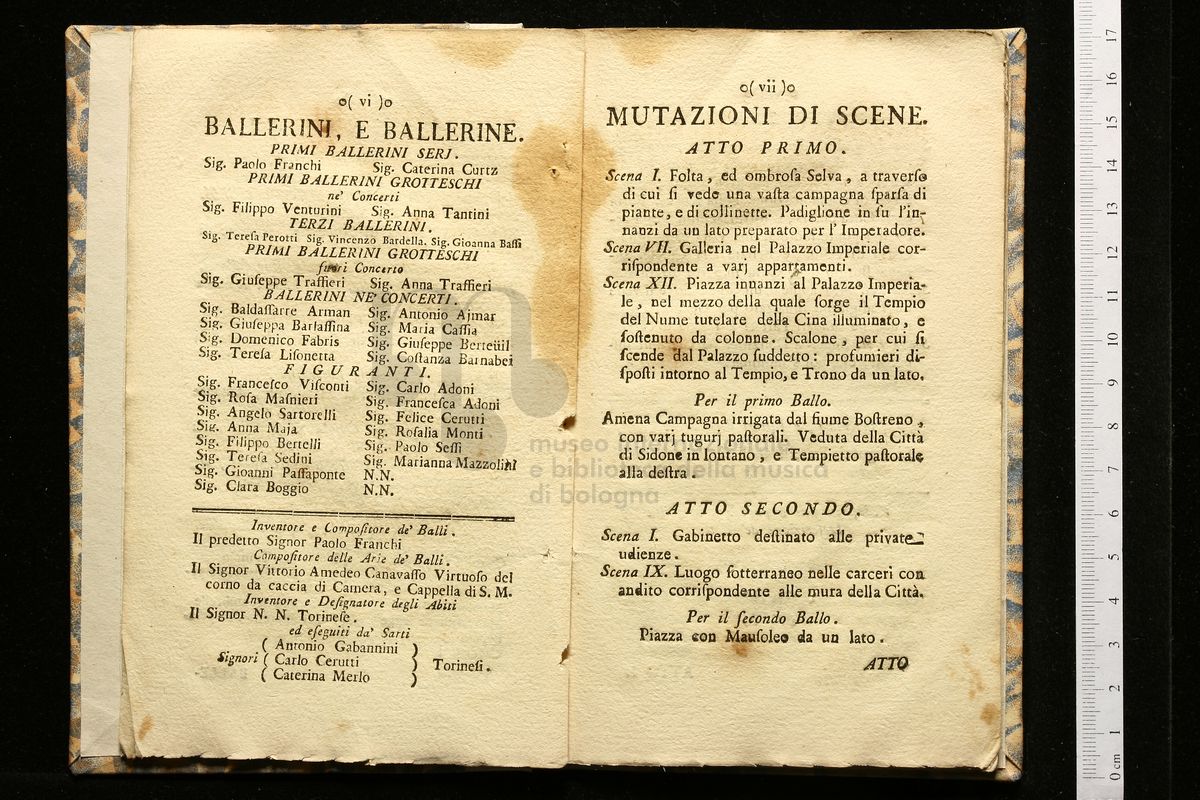 o( vi )o
BALLERINI, E BALLERINE.
PRIMI BALLERINI SERJ.
Sig. Paolo Franchi Sig. Caterina Curtz
PRIMI BALLERINI GROTTESCHI
ne' Concerti
Sig. Filippo Venturini Sig. Anna Tantini
TERZI BALLERINI.
Sig. Teresa Perotti Sig. Vincenzo Bardella. Sig. Gioanna Bassi
PRIMI BALLERINI GROTTESCHI
fuori Concerto
Sig. Giuseppe Traffieri Sig. Anna Traffieri
BALLERINI NE' CONCERTI.
Sig. Baldassarre Arman Sig. Antonio Ajmar
Sig. Giuseppa Barlassina Sig. Maria Cassia
Sig. Domenico Fabris Sig. Giuseppe
Sig. Teresa Lisonetta Sig. Costanza Barnabei
FIGURANTI.
Sig. Francesco Visconti Sig. Carlo Adoni
Sig. Rosa Masnieri Sig. Francesca Adoni
Sig. Angelo Sartorelli Sig. Felice Cerutti
Sig. Anna Maja Sig. Rosalia Monti
Sig. Filippo Bertelli Sig. Paolo Sessi
Sig. Teresa Sedini Sig. Marianna Mazzolini
Sig. Gioanni Passaponte N.N.
Sig. Clara Boggio N.N.
Inventore e Compositore de' Balli.
Il predetto Signor Paolo Franchi
Compositore delle Arie de' Balli.
Il Signor Vittorio Amedeo Canavasso Virtuoso del
corno da caccia di Camera, e Cappella di S. M.
Inventore e Designatore degli Abiti
Il Signor N. N. Torinese.
ed eseguiti da' Sarti
( Antonio Gabannini )
Signori ( Carlo Cerutti ) Torinesi.
( Caterina Merlo )
o( vii )o
MUTAZIONI DI SCENE.
ATTO PRIMO.
Scena I. Folta, ed ombrosa Selva, a traverso
di cui si vede una vasta campagna sparsa di
piante, e di collinette. Padiglione in su l'in-
nanzi da un lato preparato per l' Imperadore.
Scena VII. Galleria nel Palazzo Imperiale cor-
rispondente a varj appartamenti.
Scena XII. Piazza innanzi al Palazzo Imperia-
le, nel mezzo della quale sorge il Tempio
del Nume tutelare della Cina illuminato, e
sostenuto da colonne. Scalone, per cui si
scende dal Palazzo suddetto: profumieri di-
sposti intorno al Tempio, e Trono da un lato.
Per il primo Ballo.
Amena Campagna irrigata dal fiume Bostreno,
con varj tugurj pastorali. Veduta della Città
di Sidone in lontano, e Tempietto pastorale
alla destra.
ATTO SECONDO.
Scena I. Gabinetto destinato alle private
udienze.
Scena IX. Luogo sotterraneo nelle carceri con
andito corrispondente alle mura della Città.
Per il secondo Ballo.
Piazza con Mausoleo da un lato.
ATTO
museo internazionale
e biblioteca della musica
di bologna
0 cm 1 2 3 4 5 6 7 8 9 10 11 12 13 14 15 16 17